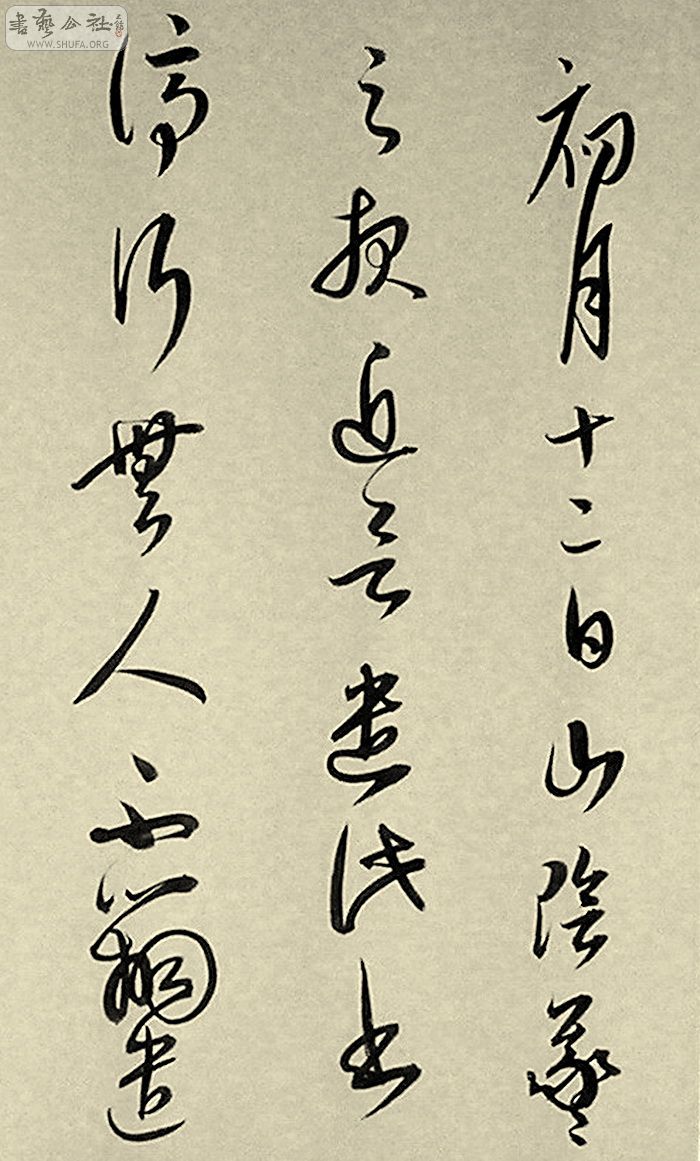 書藝公社
WWW.SHUFA.ORG
初月十二日山陰羲
之報近欲遣此書
停行無人不辦遣